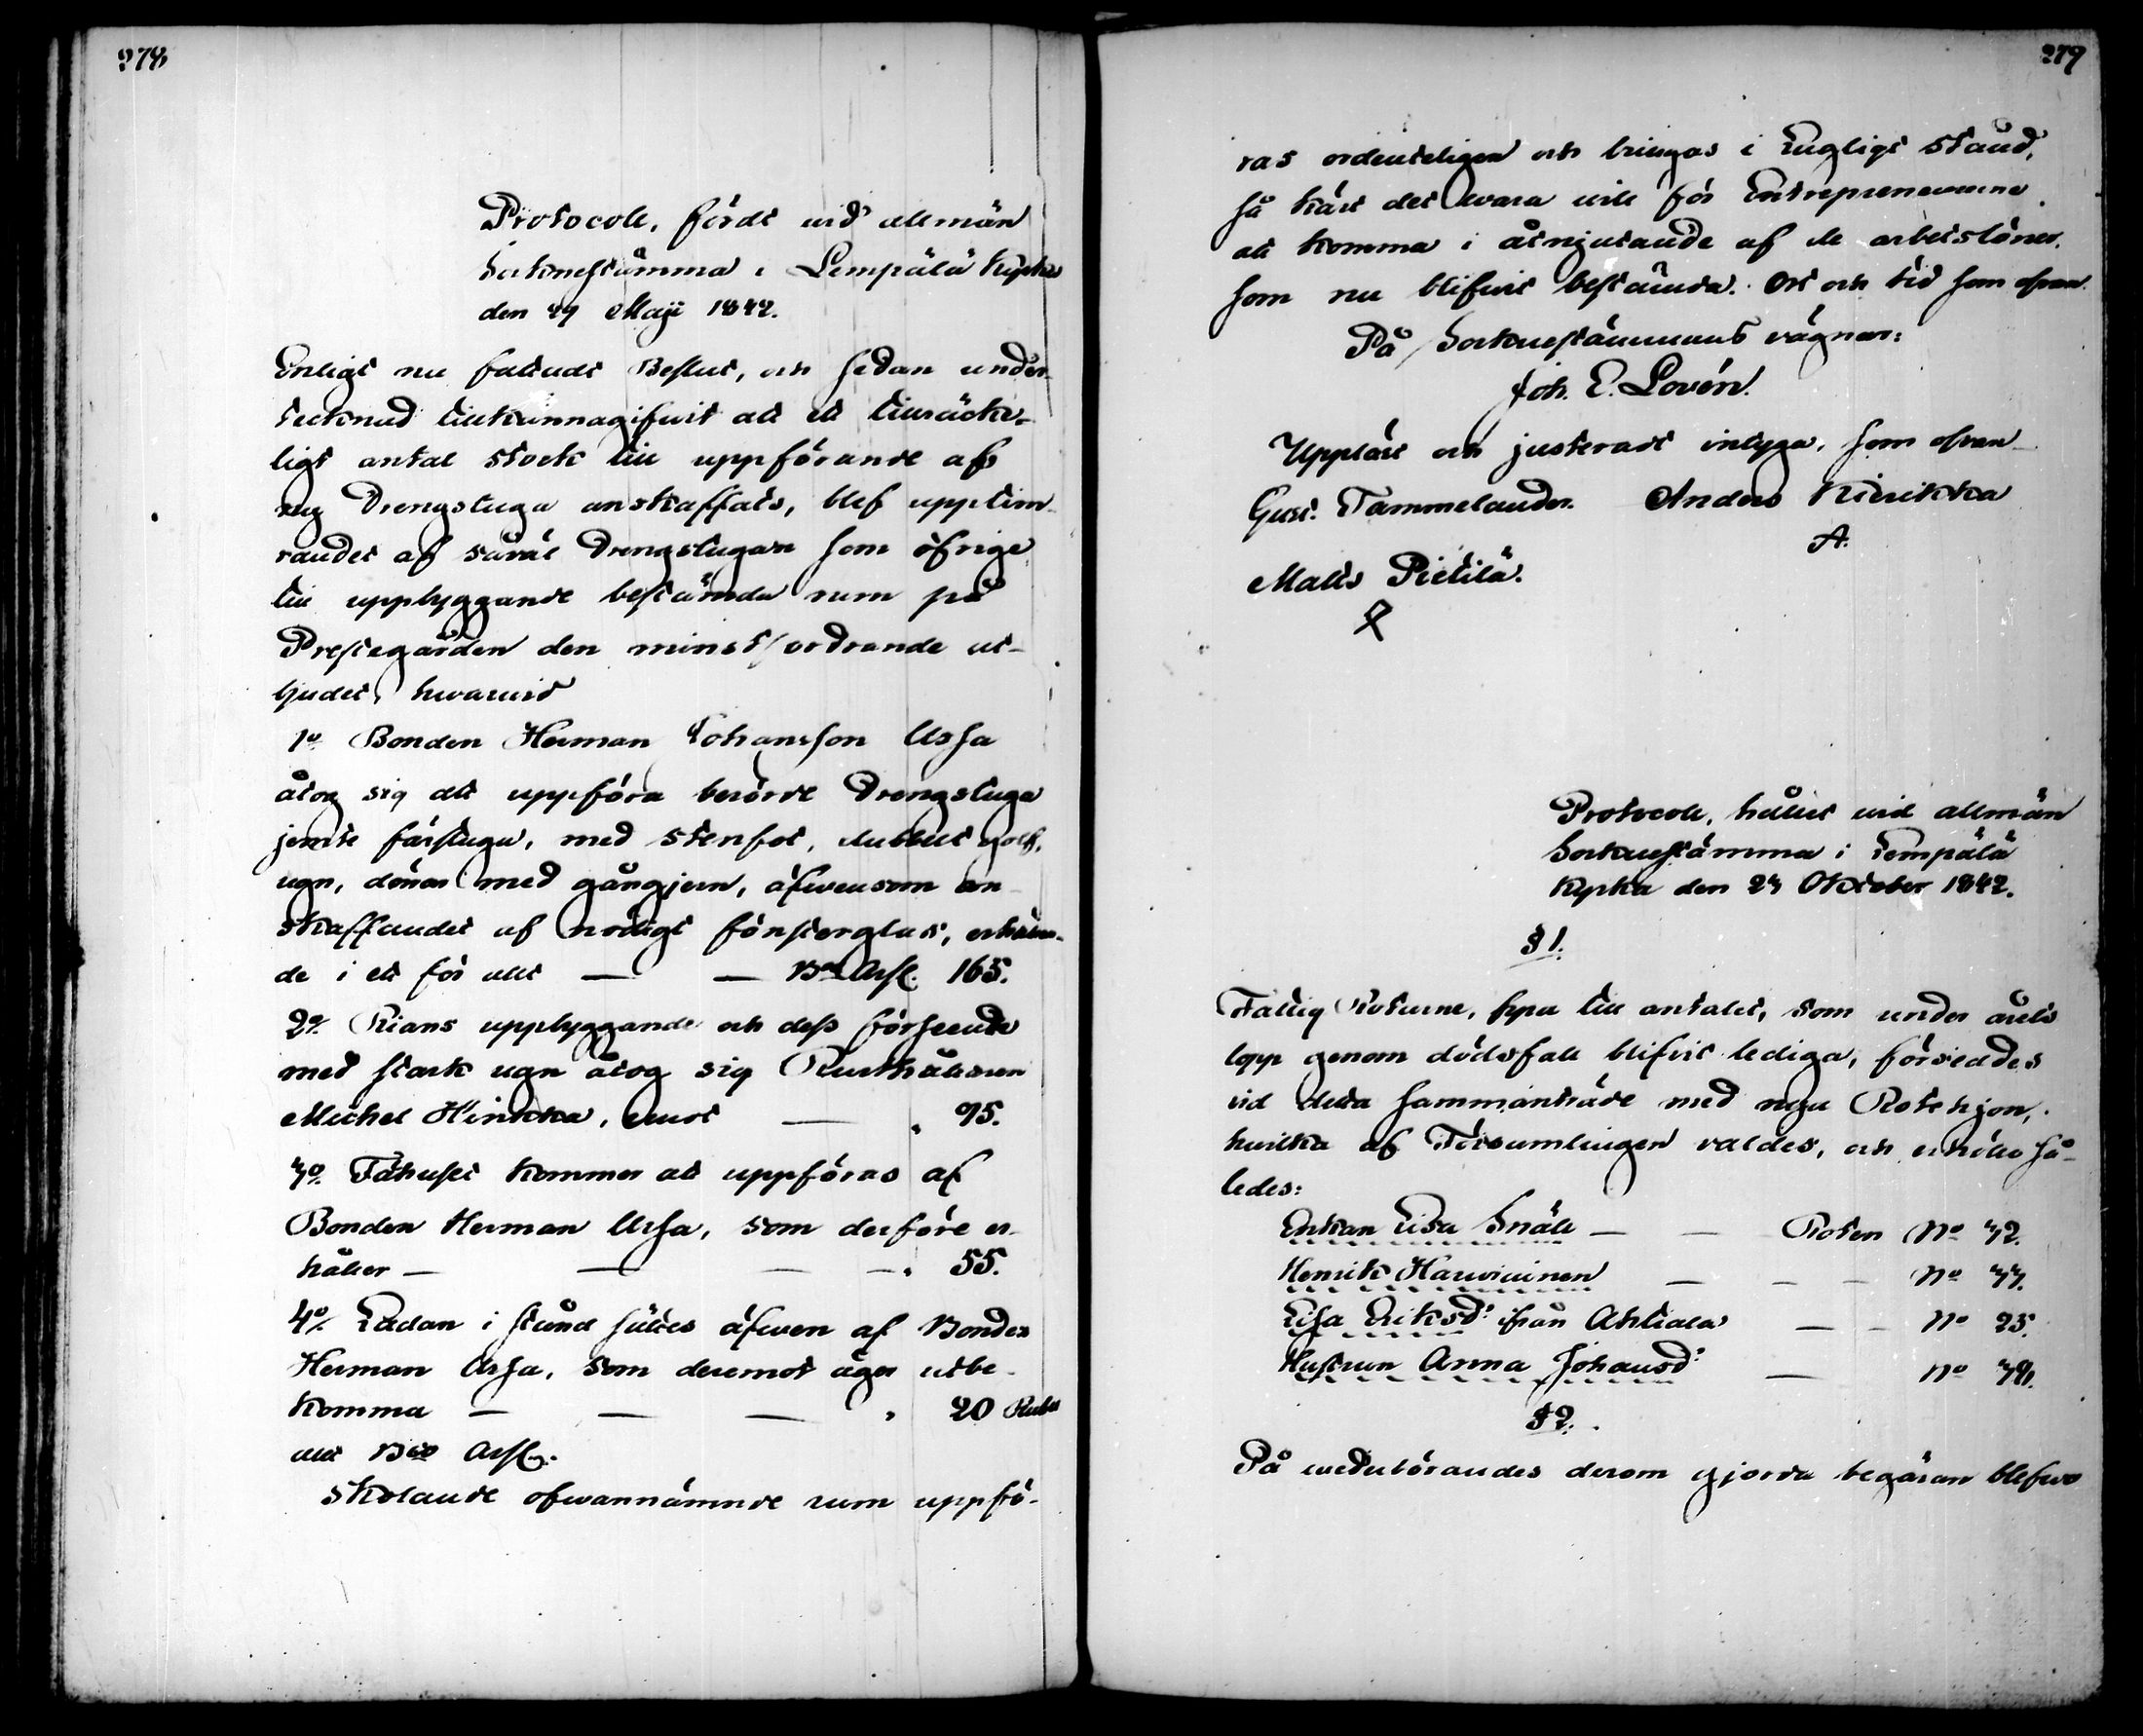 278
Protocoll, fördt wid allmän
Socknestämma i Lempälä Kyrka
den 29 Maji 1842.
Enligt nu fattadt Beslut, och sedan under-
tecknad tillkännagifwit att ett tillräcke-
ligt antal stock till uppförande af
ny Drengstuga anskaffats, blef upptim-
randet af såväl Drengstugan som öfrige
till uppbyggande bestämda rum på
Prestegården den minstfordrande ut-
bjudet, hwarwid
1o Bonden Herman Johansson Ussa
åtog sig att uppföra berörde Drengstuga
jemte farstuga, med stenfot, dubbelt golf,
ugn, dörrar med gångjern, äfwensom an-
skaffandet af nödigt fönsterglas, erhållan-
de i ett för allt — — Bco Assg. 165.
2o Rians uppbyggande och dess förseende
med stark ugn åtog sig Rusthållaren
Michel Hirikka, emot — " 95.
3o Fähuset kommer att uppföras af
Bonden Herman Ussa, som derföre er-
håller — — — — " 55.
4o Ladan i stånd sättes äfwen af Bonden
Herman Ussa, som deremot äger utbe-
komma — — — " 20 Rubel
allt Bco Assg.
Skolande ofwannämnde rum uppfö-
279
ras ordenteligen och bringas i dugligt stånd,
så kärt det wara will för Entrepreneurerne
att komma i åtnjutande af de arbetslöner,
som nu blifwit bestämda. Ort och tid som ofwan.
På Socknestämmans vägnar:
Joh. E. Lovén.
Uppläst och justeradt intyga, som ofvan
Gust. Tammelander. Anders Kirikka
A.
Matts Pietilä.
Protocoll, hållet wid allmän
Socknestämma i Lempälä
Kyrka den 23 Oktober 1842.
§ 1.
Fattig Rotarne, fyra till antalet, som under årets
lopp genom dödsfall blifvit lediga, förseddes
vid detta sammanträde med nya Rotehjon,
hvilka af Församlingen valdes, och erhöllo så-
ledes:
Enkan Lisa Snäll — — Roten No 32.
Henrik Harvivinen — — — No 33.
Lisa Eriksd:r ifrån Ahtiala — — No 25.
Hustrun Anna Johansd:r — No 39.
§ 2.
På wederbörandes derom gjorda begäran blefwo